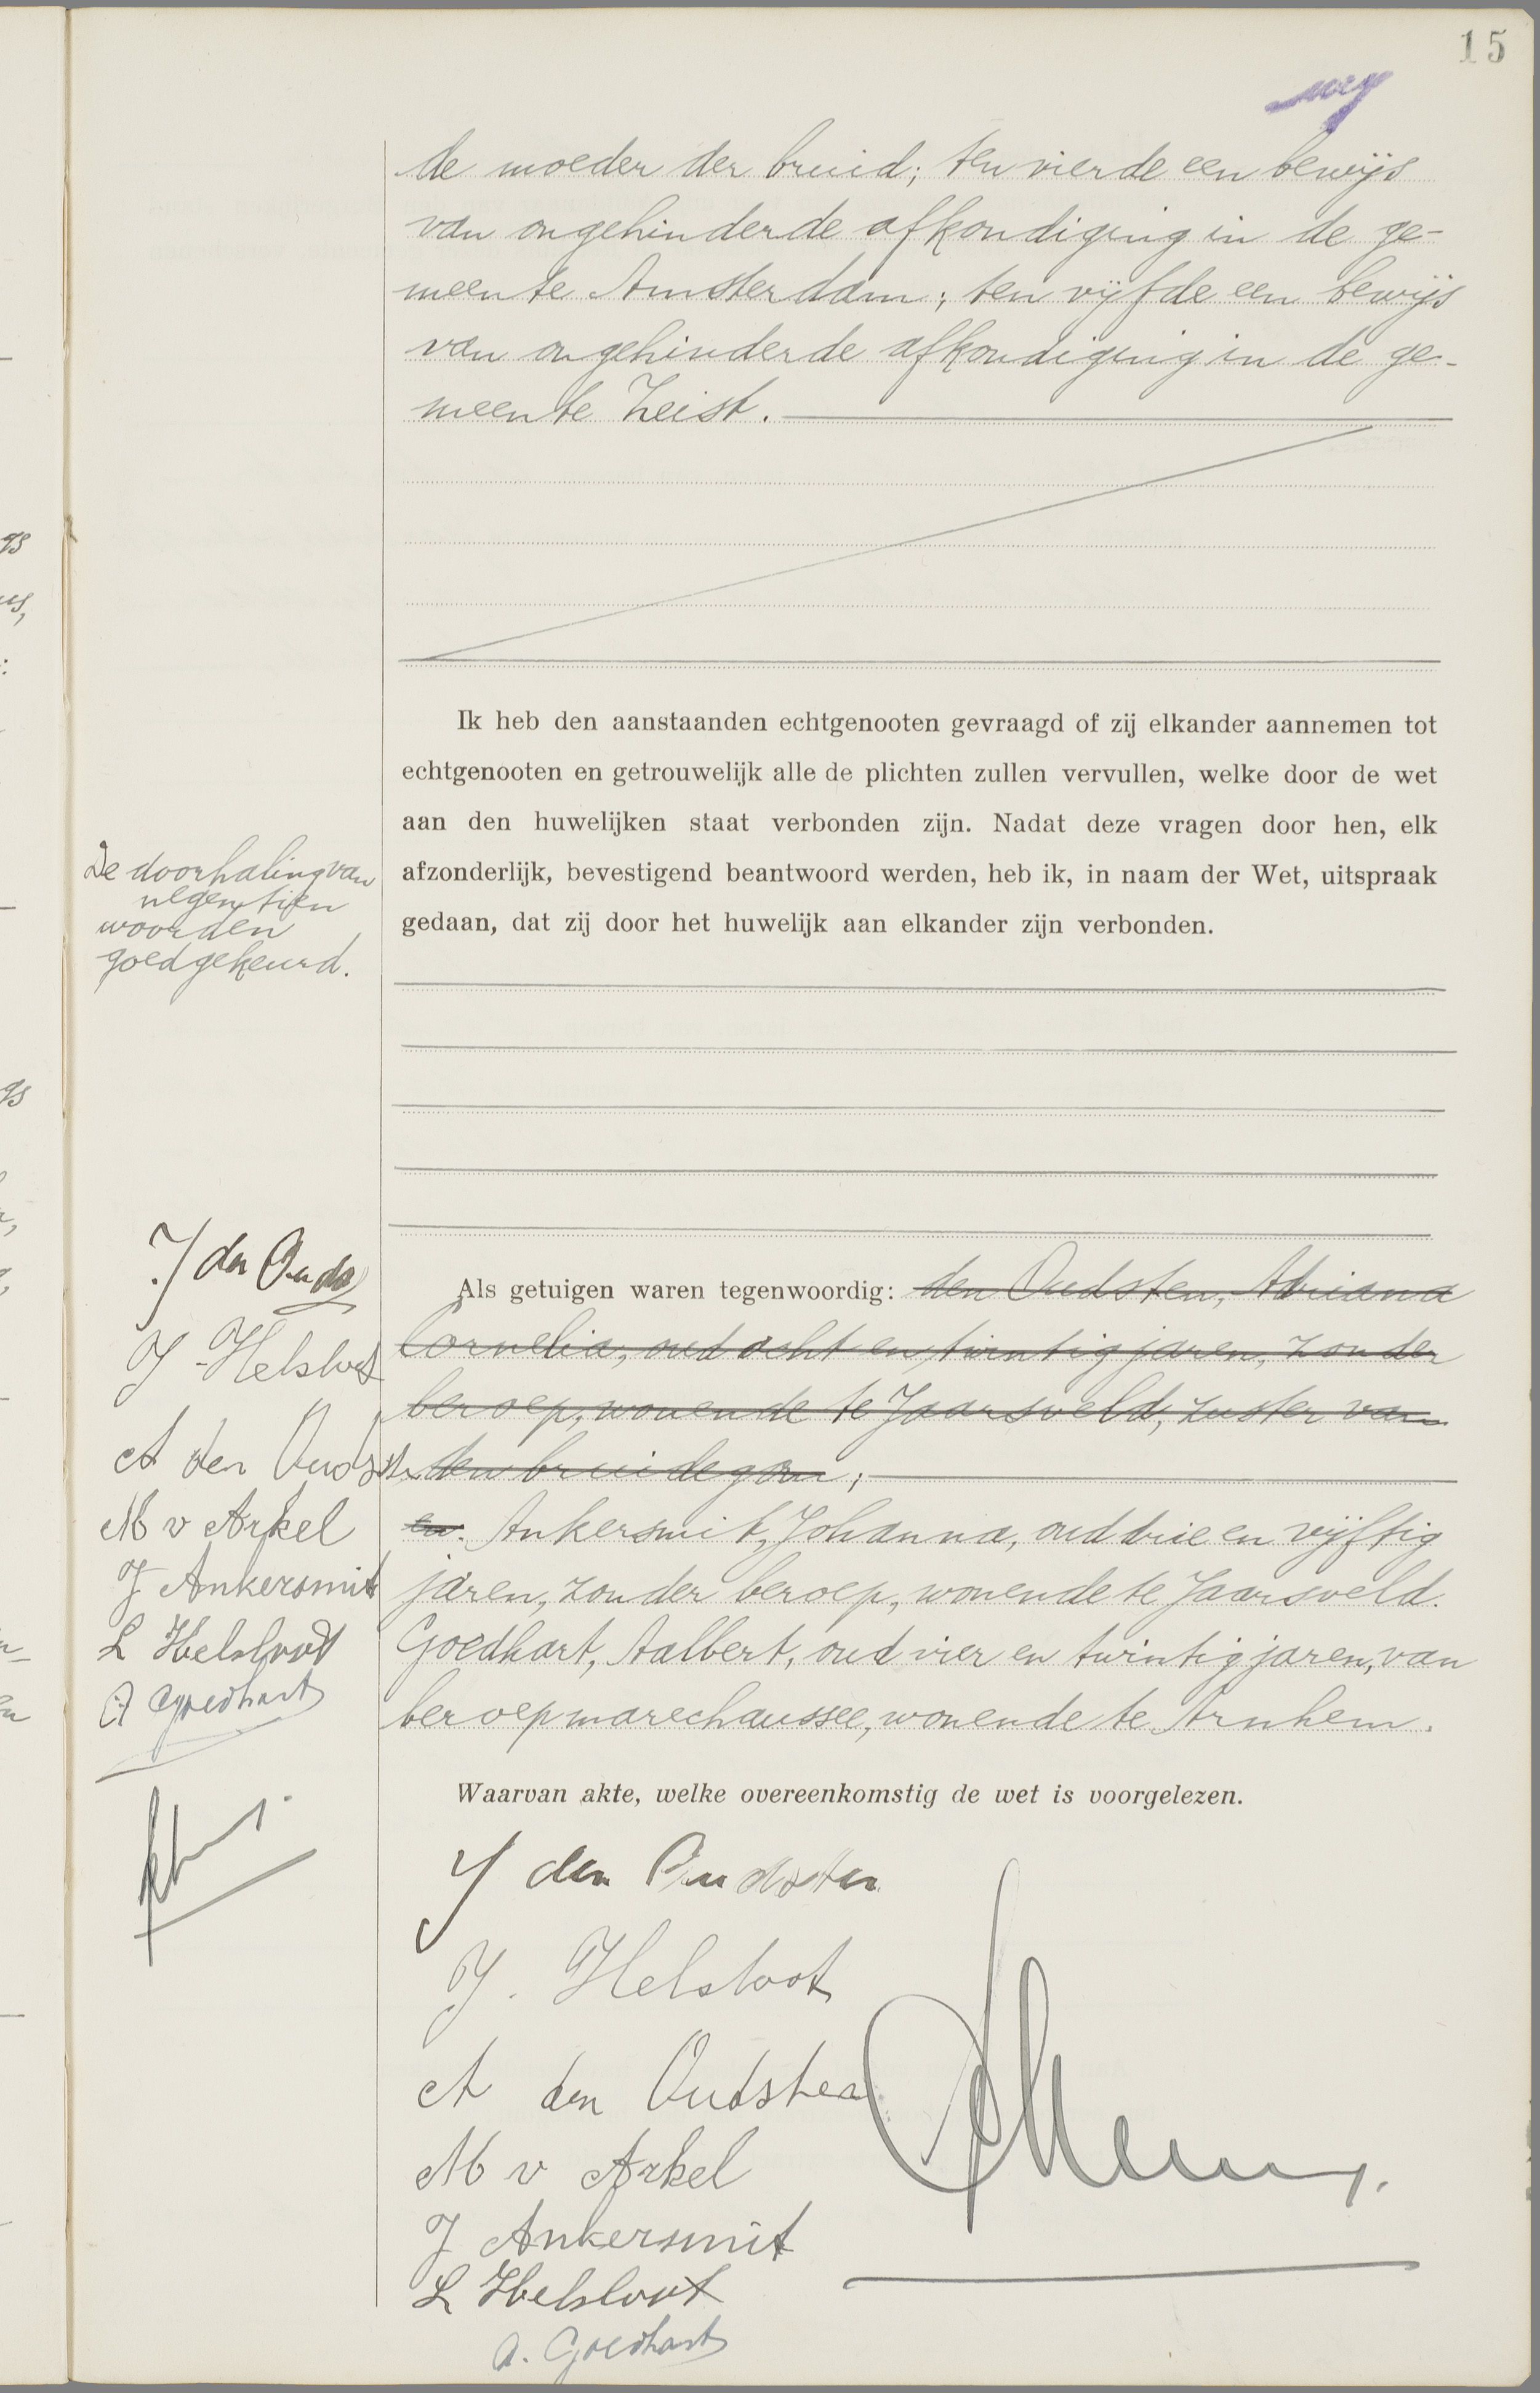 15
de moeder der bruid; ten vierde een bewijs
van ongehinderde afkondiging in de ge-
meente Amsterdam; ten vijfde een bewijs
van ongehinderde afkondiging in de ge-
meente Zeist.
Ik heb den aanstaanden echtgenooten gevraagd of zij elkander aannemen tot
echtgenooten en getrouwelijk alle de plichten zullen vervullen, welke door de wet
aan den huwelijken staat verbonden zijn. Nadat deze vragen door hen, elk
afzonderlijk, bevestigend beantwoord werden, heb ik, in naam der Wet, uitspraak
gedaan, dat zij door het huwelijk aan elkander zijn verbonden.
De doorhaling van
negentien
woorden
goedgekeurd.
J den Ouds
J Helsloot
A den Oudsten
M v Arkel
J Ankersmit
L Helsloot
A Goedhart
Als getuigen waren tegenwoordig: den Oudsten, Adriana
Cornelia, oud acht en twintig jaren, zonder
beroep, wonende te Jaarsveld, zuster van
den bruidegom;
en. Ankersmit, Johanna, oud drie en vijftig
jaren, zonder beroep, wonende te Jaarsveld.
Goedhart, Aalbert, oud vier en twintig jaren, van
beroep marechaussee, wonende te Arnhem.
Waarvan akte, welke overeenkomstig de wet is voorgelezen.
J den Oudsten
J. Helsloot
A den Oudsten
M v Arkel
J Ankersmit
L Helsloot
A. Goedhart